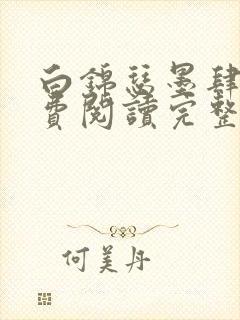 白錦瑟墨肆
費閱讀完整
何美丹